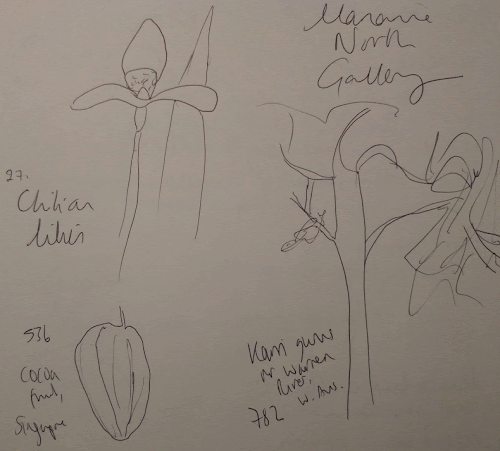 Marianne
North
Gallery
27.
Chilian
lilies
536
Cocoa
fruit,
Singapore
Karri gums
nr Warren
River,
W. Aus.
782